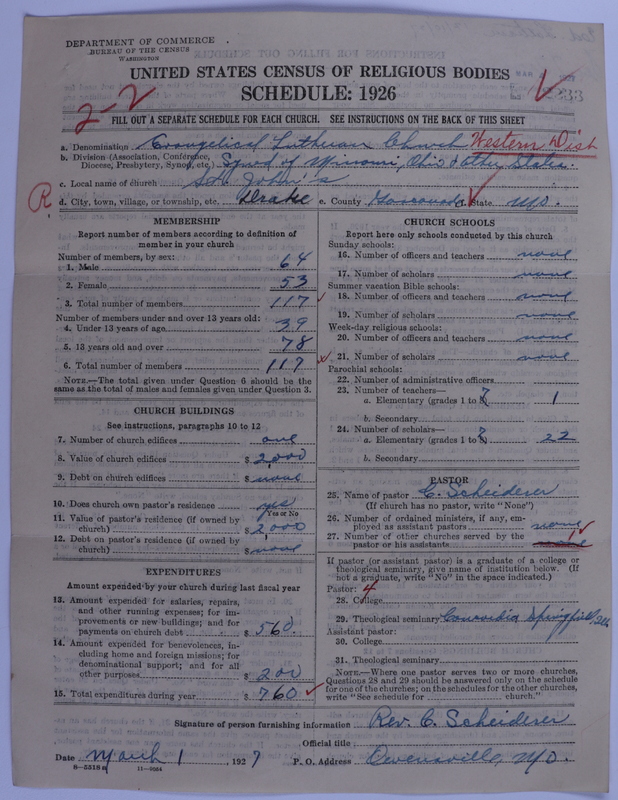 DEPARTMENT OF COMMERCE
BUREAU OF THE CENSUS
WASHINGTON
UNITED STATES CENSUS OF RELIGIOUS BODIES
SCHEDULE: 1926
2-2
FILL OUT A SEPARATE SCHEDULE FOR EACH CHURCH. SEE INSTRUCTIONS ON THE BACK OF THIS SHEET
a. Denomination Evangelical Lutheran Church Western Dist
b. Division (Association, Conference, Diocese, Presbytery, Synod, etc.) Synod of Missouri, Ohio & other States.
c. Local name of church St. John's
R d. City, town, village, or township, etc. Drake e. County Gasconade f. State MO.
MEMBERSHIP
Report number of members according to definition of
member in your church
Number of members, by sex:
1. Male 64
2. Female 53
3. Total number of members 117
Number of members under and over 13 years old:
4. Under 13 years of age 39
5. 13 years old and over 78
6. Total number of members 117
NOTE.—The total given under Question 6 should be
same as the total of males and females given under Question 3.
CHURCH BUILDINGS
See instructions, paragraphs 10 to 12
7. Number of church edifices one
8. Value of church edifices $ 2,000
9. Debt on church edifices $ none
10. Does church own pastor's residence yes
Yes or No
11. Value of pastor's residence (if owned by
church) $ 2,000
12. Debt on pastor's residence (if owned by
church) $ none
EXPENDITURES
Amount expended by your church during last fiscal year
13. Amount expended for salaries, repairs,
and other running expenses; for im-
provements or new buildings; and for
payments on church debt $ 560.
14. Amount expended for benevolences, in-
cluding home and foreign missions; for
denominational support; and for all
other purposes $ 200
15. Total expenditures during year $ 760
CHURCH SCHOOLS
Report here only schools conducted by this church
Sunday schools:
16. Number of officers and teachers none
17. Number of scholars none
Summer vacation Bible schools:
18. Number of officers and teachers none
19. Number of scholars none
Week-day religious schools:
20. Number of officers and teachers none
21. Number of scholars none
Parochial schools:
22. Number of administrative officers
23. Number of teachers—
a. Elementary (grades 1 to 8) 7 1
b. Secondary
24. Number of scholars—
a. Elementary (grades 1 to 8) 7 22
b. Secondary
PASTOR
25. Name of pastor C. Scheiderer
(If church has no pastor, write "None")
26. Number of ordained ministers, if any, em-
ployed as assistant pastors none
27. Number of other churches served by the
pastor or his assistants none 1
If pastor (or assistant pastor) is a graduate of a college or
theological seminary, give name of institution below. (If
not a graduate, write "No" in the space indicated.)
Pastor: 4
28. College
29. Theological seminary Concordia Springfield, Ill.
Assistant pastor:
30. College
31. Theological seminary
NOTE.—Where one pastor serves two or more churches,
Questions 28 and 29 should be answered only on the schedule
for one of the churches; on the schedules for the other churches,
write "See schedule for church."
Signature of person furnishing information Rev. C. Scheiderer
Official title
Date March 1, 1927 P. O. Address Owensville, MO.
8-5518a 11-9064